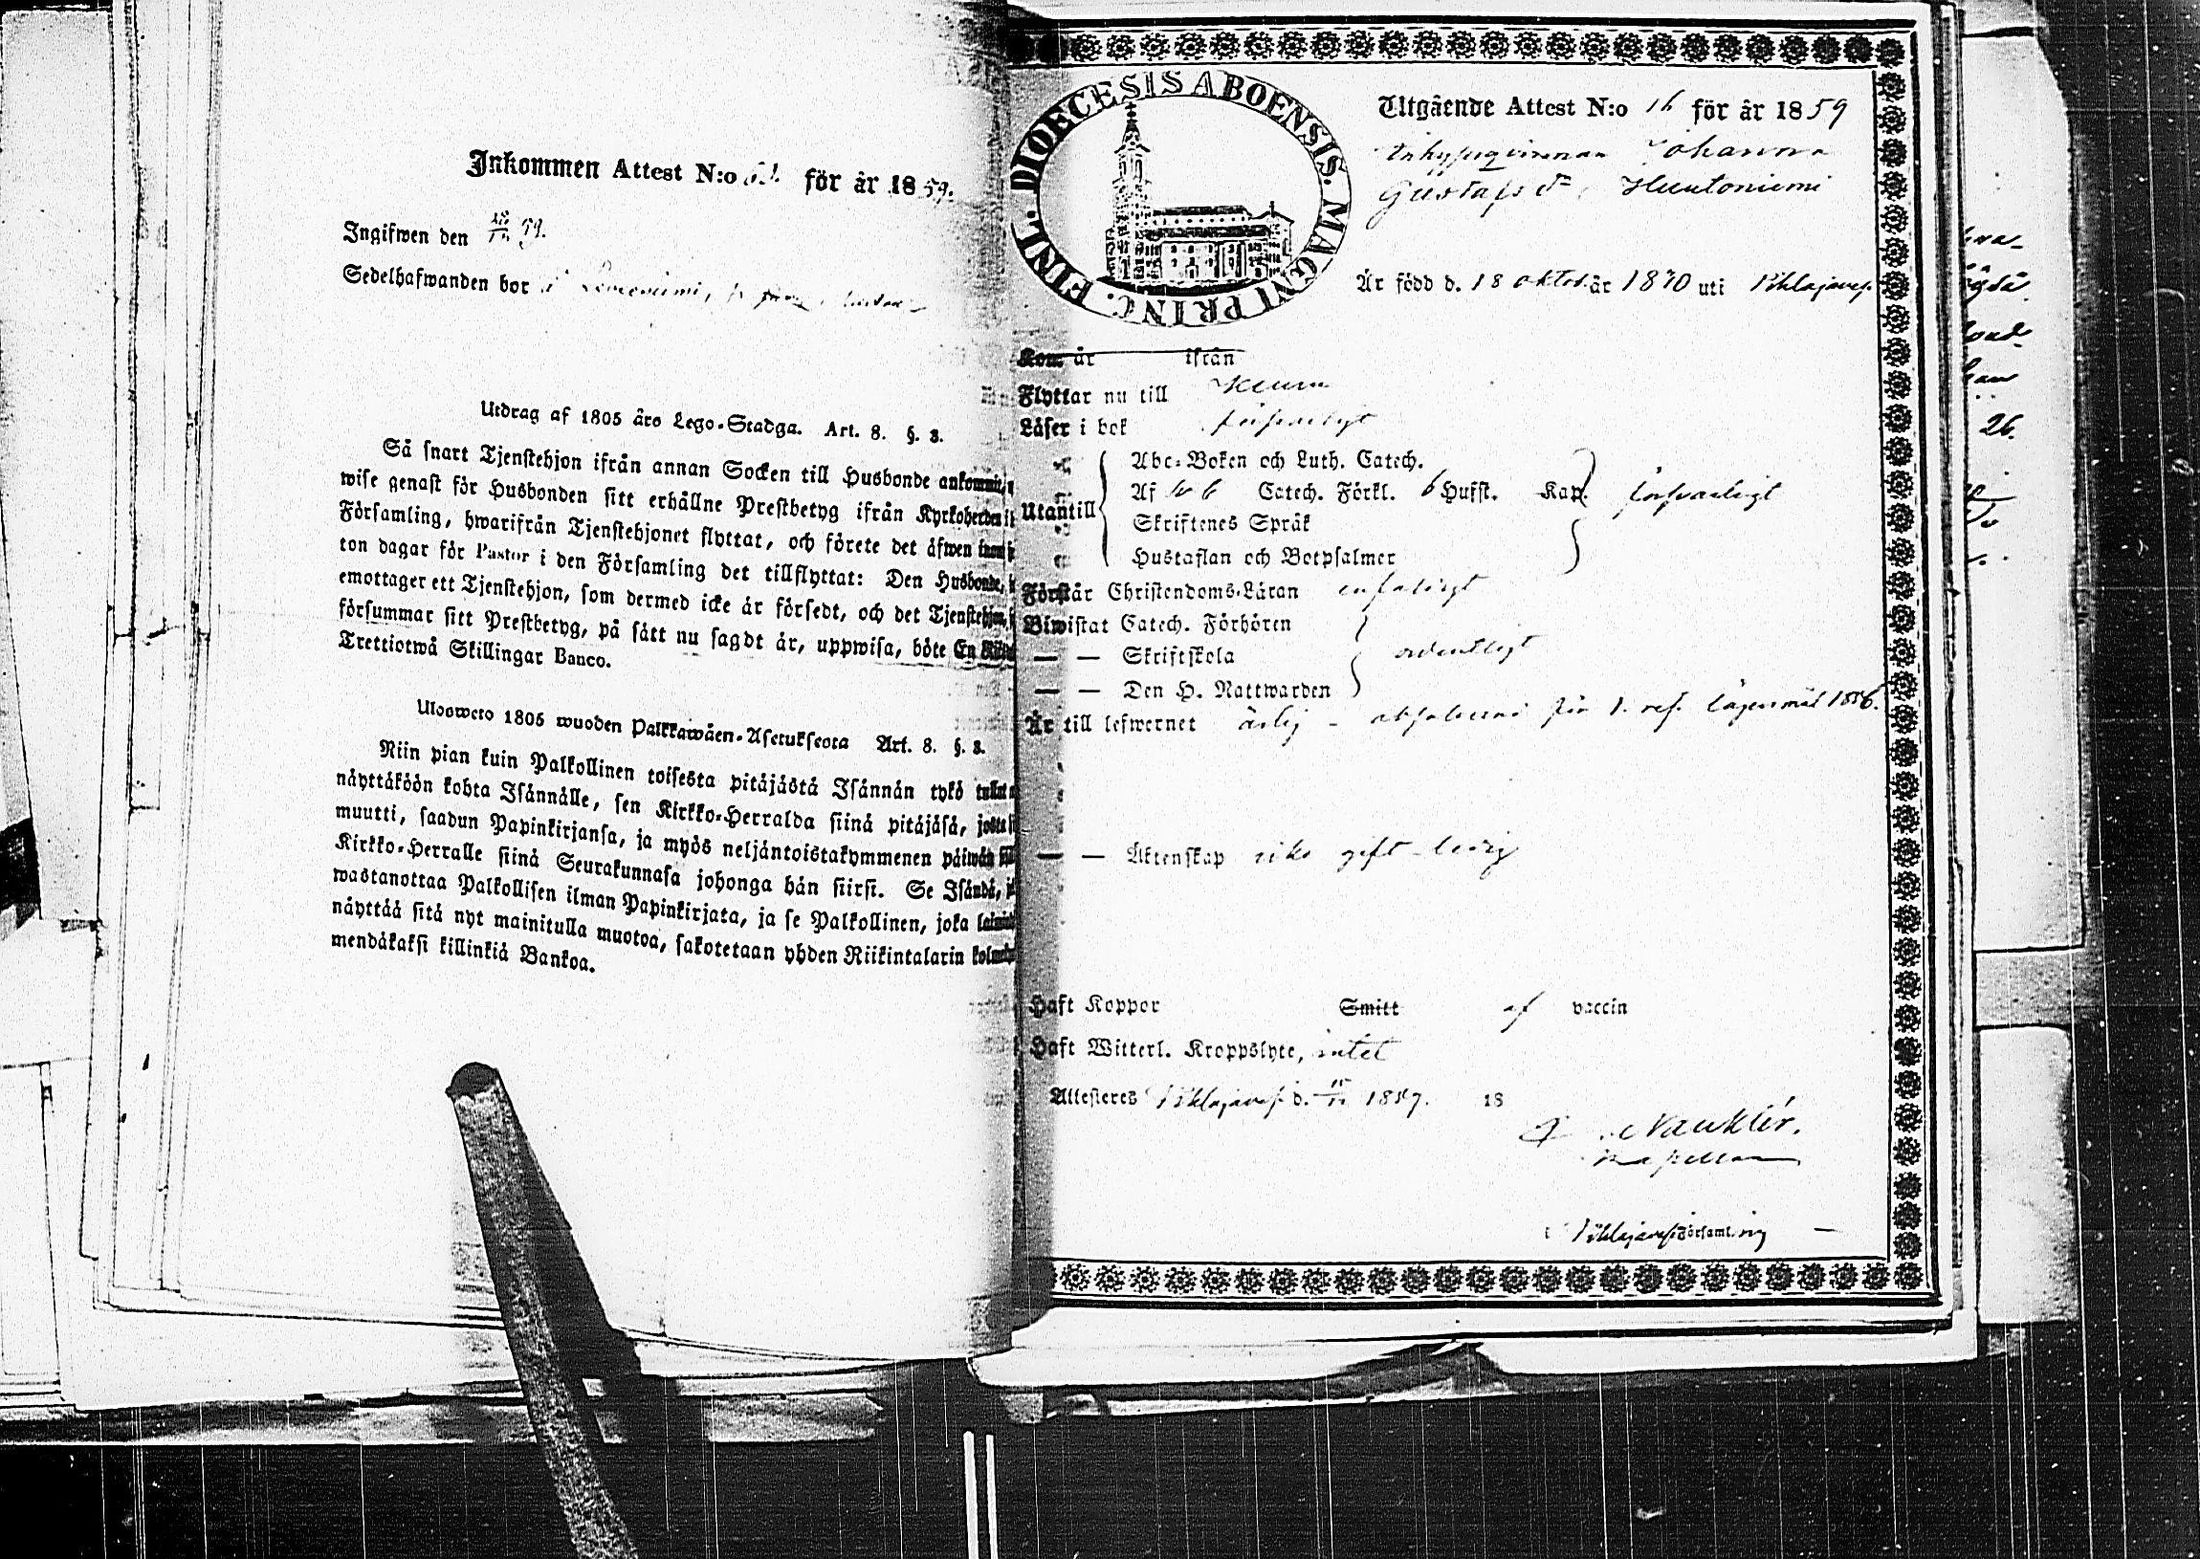 Inkommen Attest N:o för år 1859.
Ingifwen den 59.
Sedelhafwanden bor
Utdrag af 1805 års Lego-Stadga. Art. 8. §. 3.
Så snart Tjenstehjon ifrån annan Socken till Husbonde ankommit,
wise genast för Husbonden sitt erhållne Prestbetyg ifrån Kyrkoherden i
Församling, hwarifrån Tjenstehjonet flyttat, och förete det äfwen inom
ton dagar för Pastor i den Församling det tillflyttat: Den Husbonde,
emottager ett Tjenstehjon, som dermed icke är försedt, och det Tjenstehjon,
försummar sitt Prestbetyg, på sätt nu sagdt är, uppwisa, böte En
Trettiotwå Skillingar Banco.
Ulosweto 1805 wuoden Palkkawäen-Asetuksesta Art. 8. §. 3.
Niin pian kuin Palkollinen toisesta pitäjästä Isännän tykö tullut
näyttäköön kohta Isännälle, sen Kirkko-Herralda siinä pitäjäsä, josta
muutti, saadun Papinkirjansa, ja myös neljäntoistakymmenen päiwän
Kirkko-Herralle siinä Seurakunnasa johonga hän siirsi. Se Isändä,
wastanottaa Palkollisen ilman Papinkirjata, ja se Palkollinen, joka
näyttää sitä nyt mainitulla muotoa, sakotetaan yhden Riikintalarin
mendäkaksi killinkiä Bankoa.
DIOECESIS ABOENSIS. MAGNI PRINC. FINL.
Utgående Attest N:o 16 för år 1859
Inhysesqvinnan Johanna
Gustafs dr Huutoniemi
Är född d. 18 oktob. år 1830 uti Pihlajavesi
Kom år ifrån
Flyttar nu till Keuru
Läser i bok försvarligt
Abc-Boken och Luth. Catech.
Af Catech. Förkl. 6 Hufst. Kap. försvarligt
Utantill
Skriftenes Språk
Hustaflan och Botpsalmer
Förstår Christendoms-Läran enfaldigt
Biwistat Catech. Förhören
— — Skriftskola ordentligt
— — Den H. Nattwarden
Är till lefwernet ärlig - absolverad för 1. res. lägersmål 1856.
— — Äktenskap icke gift - ledig
Haft Koppor Smitt af vaccin
Haft Witterl. Kroppslyte, intet
Attesteres Pihlajavesi d. 1859. 18
Nauklér.
Kapellan
i Pihlajavesi Församling —